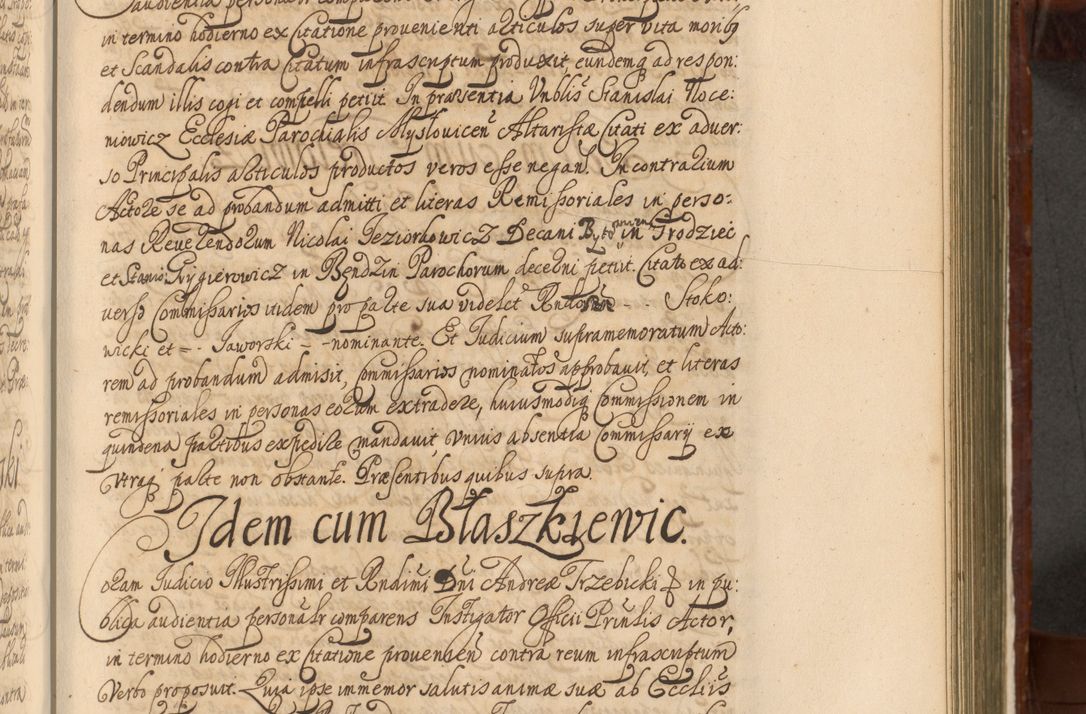 in termino hodierno ex Citatione provenienti articulos super vita moribq
et Scandalis contra Citatum infrascriptum produxit eundemq ad respon:
dendum illis cogi et compelli petiit. In praesentia Vnblis Stanislai Noce:
niowicz Ecclesiæ Parochialis Mysłovicen Altaristæ Citati ex adver:
so Principalis articulos productos veros esse negan. In contrarium
Actore se ad probandum admitti et literas Remissoriales in perso:
nas Reverendorum Nicolai Jeziorkowicz Decani in Grodziec
et Stanis Grygierowicz in Bendzin Parochorum decerni petiit. Citato ex ad:
verso Commissarios itidem pro parte sua videlct Rndos - - Stoko:
wicki et - - Jaworski - - nominante. Et Iudicium supramemoratum Acto:
rem ad probandum admisit, Commissarios nominatos approbavit, et literas
remissoriales in personas eorum extradere, huiusmodiq Commissionem in
quindena partibus expedire mandavit, vnius absentia Commissarij ex
vtraq parte non obstante. Præsentibus quibus supra.
Idem cum Błaszkiewic.
oram Iudicio Illustrissimi et Rndimi Dni Andreæ Trzebicki in pu:
blica audientia personalr comparens Instigator Officii Prinlis Actor,
in termino hodierno ex Citatione provenien contra reum infrascriptum
verbo proposuit. Quia ipse immemor salutis animæ suæ ab Ecclius